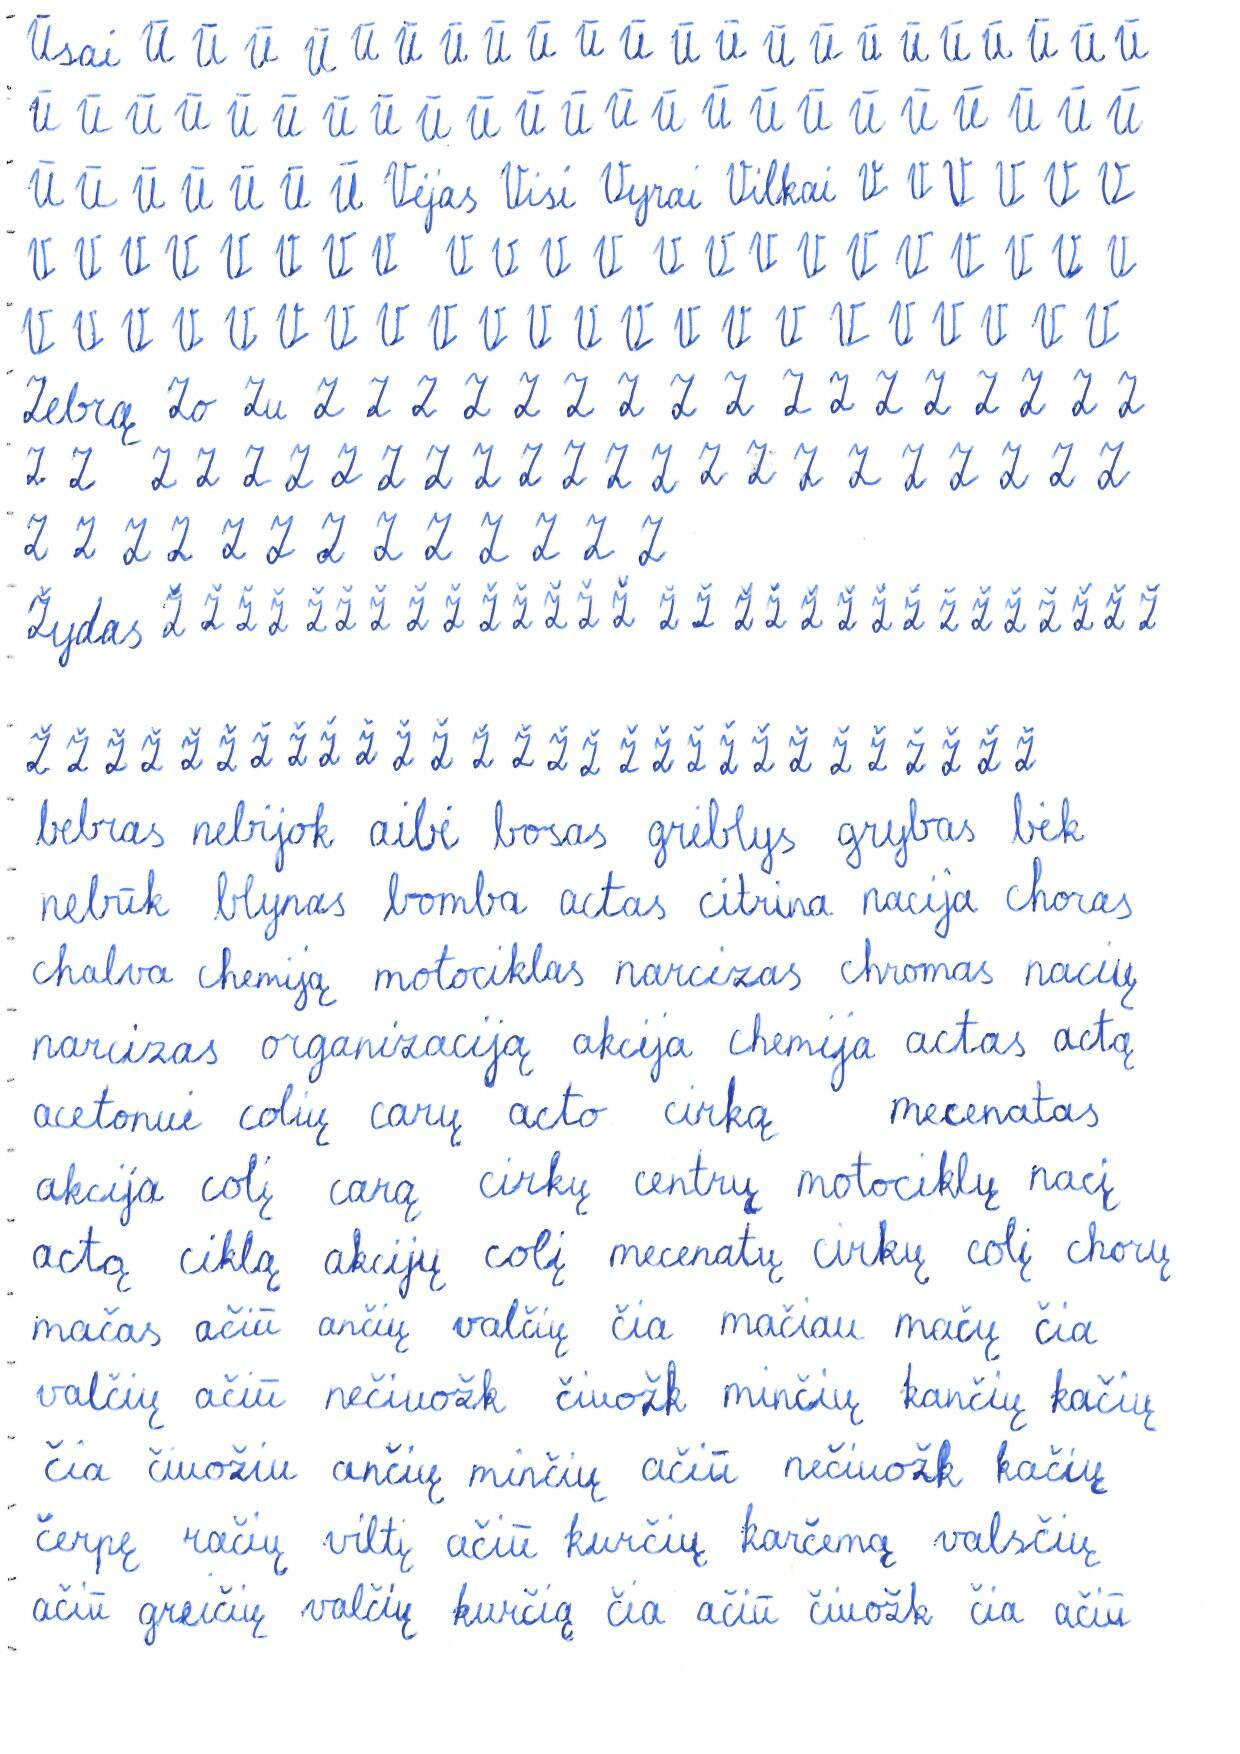 Ūsai Ū Ū Ū Ū Ū Ū Ū Ū Ū Ū Ū Ū Ū Ū Ū Ū Ū Ū Ū Ū Ū Ū
Ū Ū Ū Ū Ū Ū Ū Ū Ū Ū Ū Ū Ū Ū Ū Ū Ū Ū Ū Ū Ū Ū Ū
Ū Ū Ū Ū Ū Ū Ū Vėjas Visi Vyrai Vilkai V V V V V V
V V V V V V V V V V V V V V V V V V V V V V
V V V V V V V V V V V V V V V V V V V V V V
Zebrą Zo Zu Z Z Z Z Z Z Z Z Z Z Z Z Z Z Z Z Z
Z Z Z Z Z Z Z Z Z Z Z Z Z Z Z Z Z Z Z Z Z Z Z
Z Z Z Z Z Z Z Z Z Z Z Z Z
Žydas Ž Ž Ž Ž Ž Ž Ž Ž Ž Ž Ž Ž Ž Ž Ž Ž Ž Ž Ž Ž Ž Ž Ž Ž Ž Ž Ž Ž Ž
Ž Ž Ž Ž Ž Ž Ž Ž Ž Ž Ž Ž Ž Ž Ž Ž Ž Ž Ž Ž Ž Ž Ž Ž Ž Ž Ž Ž
bebras nebijok aibė bosas grėblys grybas bėk
nebūk blynas bomba actas citrina nacija choras
chalva chemiją motociklas narcizas chromas nacių
narcizas organizaciją akcija chemija actas actą
acetonui colių carų acto cirką mecenatas
akcija colį carą cirkų centrų motociklų nacį
actą ciklą akcijų colį mecenatų cirkų colį chorų
mačas ačiū ančių valčių čia mačiau mačų čia
valčių ačiū nečiuožk čiuožk minčių kančių kačių
čia čiuožiu ančių minčių ačiū nečiuožk kačių
čerpę račių viltį ačiū kurčių karčemą valsčių
ačiū greičių valčių kurčią čia ačiū čiuožk čia ačiū